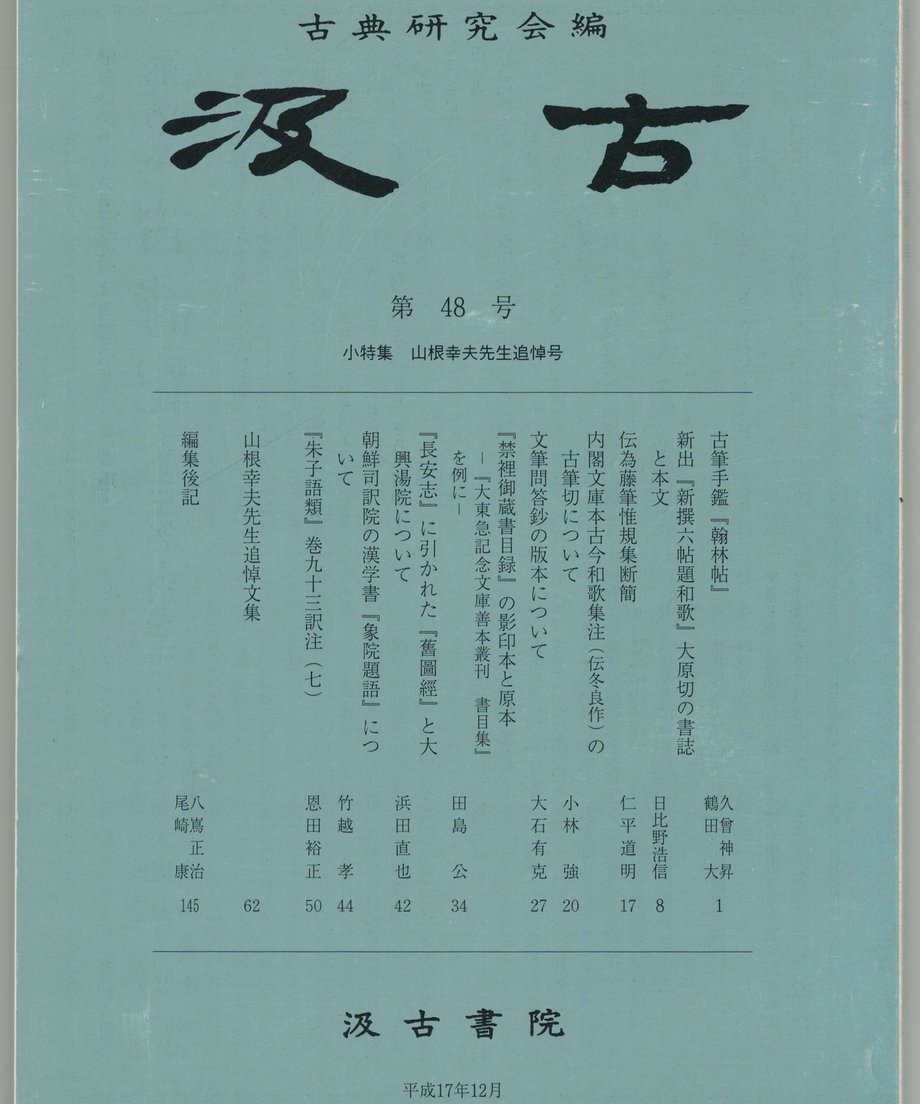 古典研究会編
汲古
第 48 号
小特集 山根幸夫先生追悼号
古筆手鑑『翰林帖』
久曾神昇
鶴田大
1
新出『新撰六帖題和歌』大原切の書誌
と本文
日比野浩信
8
伝為藤筆惟規集断簡
仁平道明
17
内閣文庫本古今和歌集注（伝冬良作）の
古筆切について
小林強
20
文筆問答鈔の版本について
大石有克
27
『禁裡御蔵書目録』の影印本と原本
―『大東急記念文庫善本叢刊 書目集』
を例に―
田島公
34
『長安志』に引かれた『舊圖經』と大
興湯院について
浜田直也
42
朝鮮司訳院の漢学書『象院題語』につ
いて
竹越孝
44
『朱子語類』巻九十三訳注（七）
恩田裕正
50
山根幸夫先生追悼文集
62
編集後記
八嶌正治
尾崎康
145
汲古書院
平成17年12月